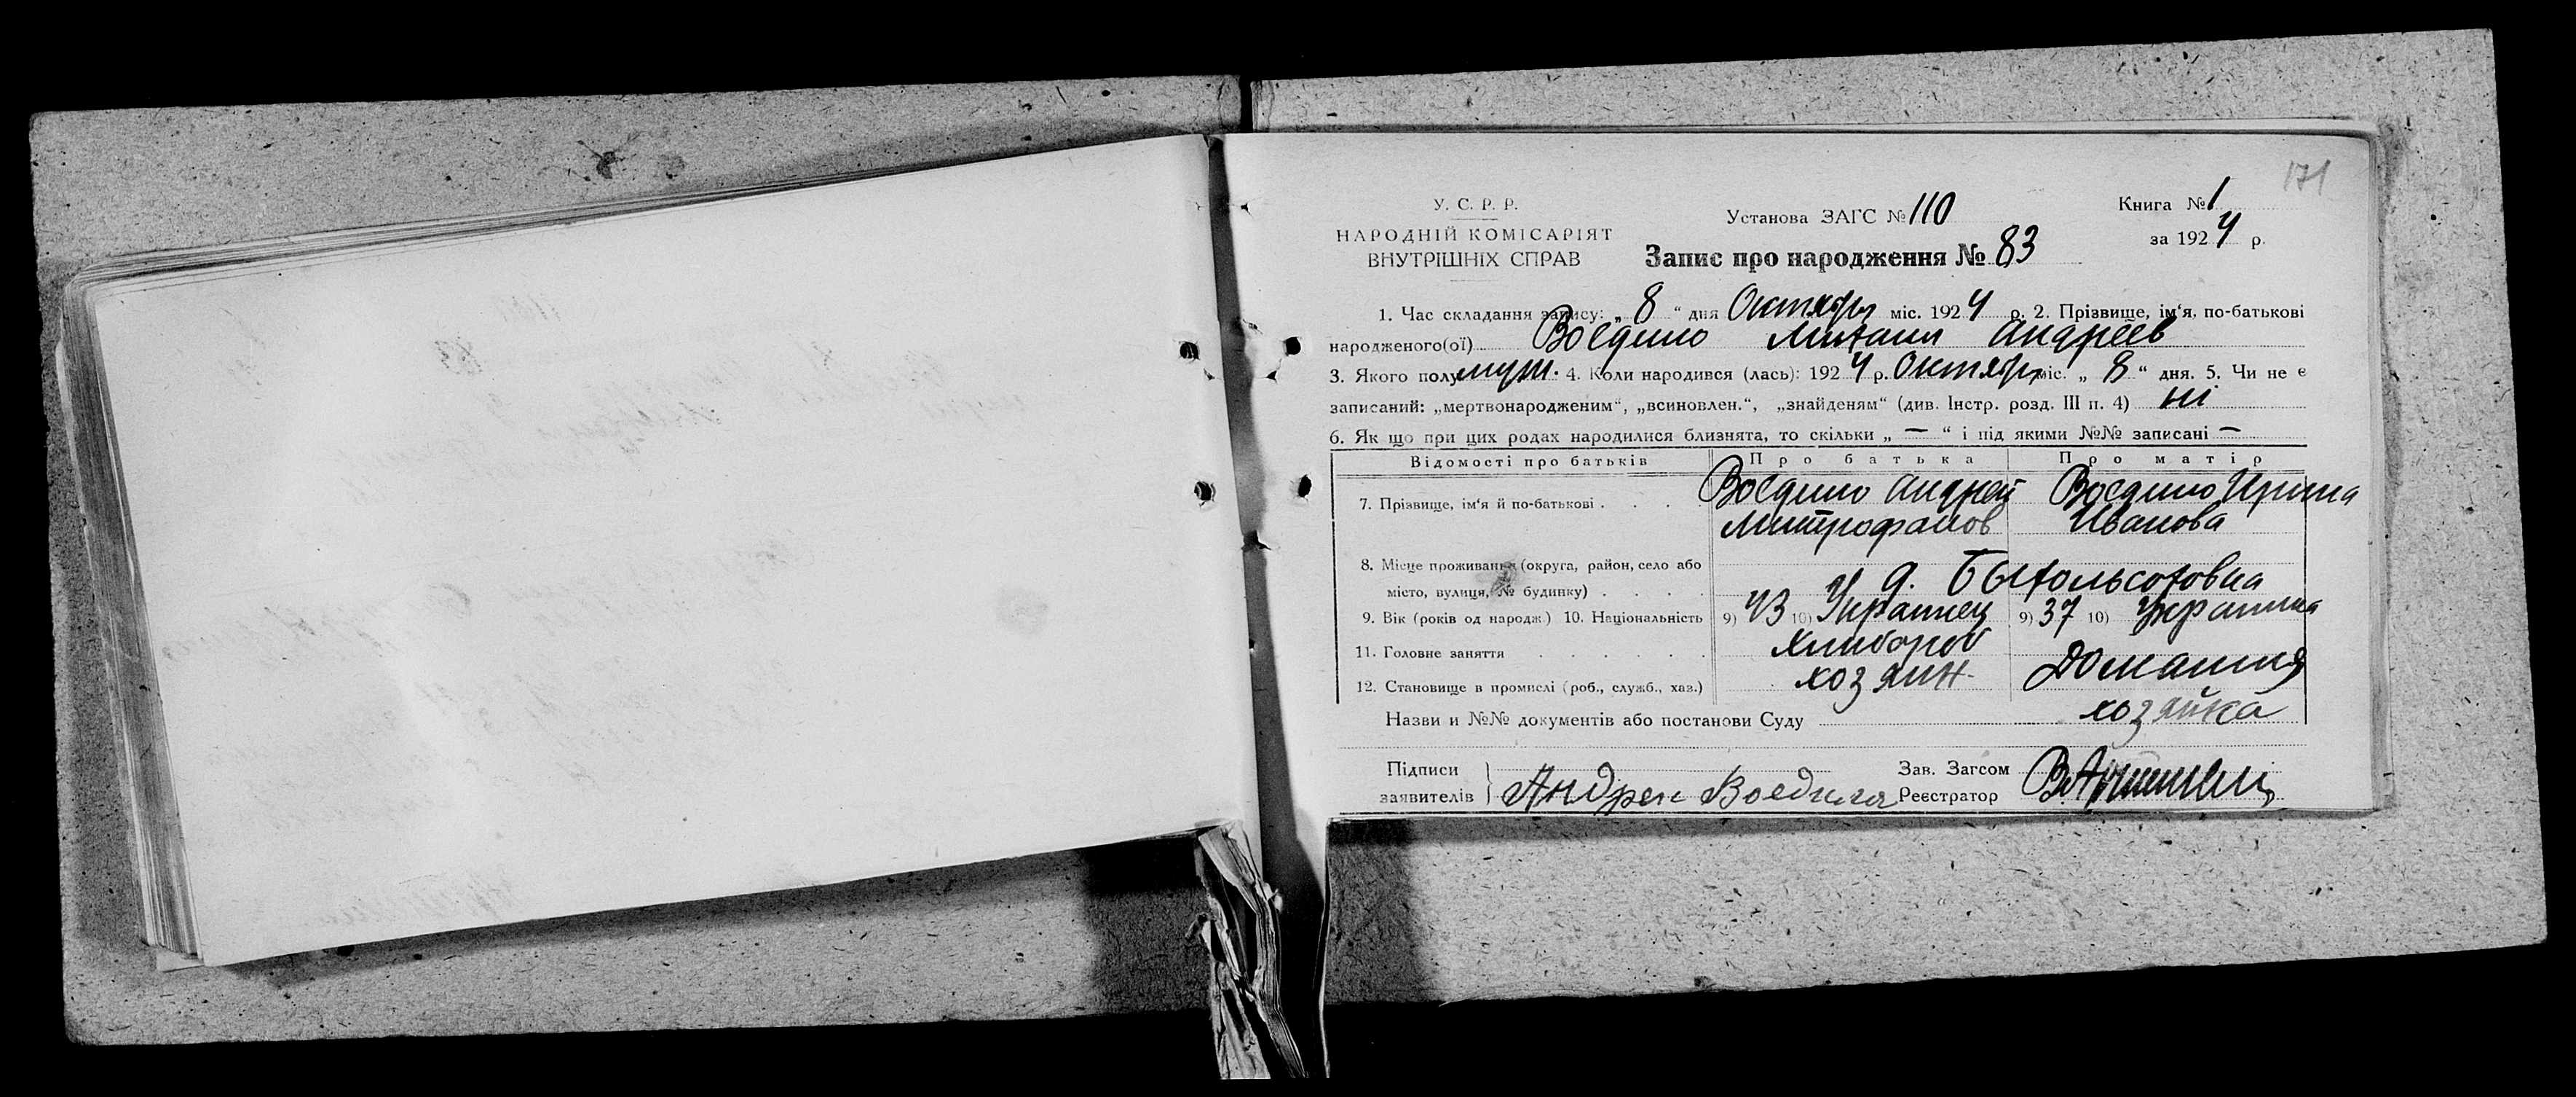 171
У. С. Р. Р.
НАРОДНІЙ КОМІСАРІЯТ
ВНУТРІШНІХ СПРАВ
Установа ЗАГС № 110
Запис про народження № 83
Книга № 1
за 1924 р.
1. Час складання запису: „ 8 “ дня Октября міс. 1924 р. 2. Прізвище, ім‘я, по-батькові
народженого(ої) Воедило Михаил Андреев
3. Якого полу муж. 4. Коли народився (лась): 1924 р. Октября міс. „ 8 “ дня. 5. Чи не є
записаний: „мертвонародженим“, „всиновлен.“, „знайденям“ (див. Інстр. розд. III п. 4) ні
6. Як що при цих родах народилися близнята, то скільки „ — “ і під якими №№ записані —
Відомості про батьків Про батька Про матір
7. Прізвище, ім‘я й по-батькові . . . . Воедило Андрей Воедило Ирина
Митрофанов Иванова
8. Місце проживання (округа, район, село або
місто, вулиця, № будинку) . . . . д.
9. Вік (років од народж.) 10. Національність 9) 43 10) Украинец 9) 37 10) Украинка
11. Головне заняття . . . . . . хлибороб
12. Становище в промислі (роб., служб., хаз.) хозяин Домашняя
Назви и №№ документів або постанови Суду хозяйка
Підписи Зав. Загсом
заявителів Андреи Воедила Реєстратор